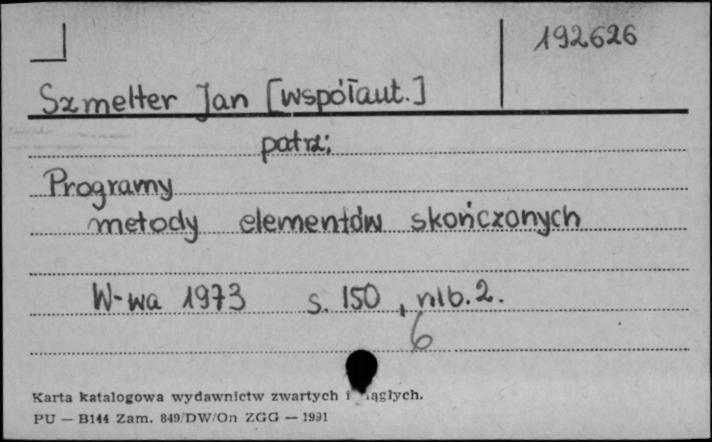 192626
Szmelter Jan [współaut.]
patrz:
Programy
metody elementów skończonych
W-wa 1973 s. 150, nlb. 2.
6
Karta katalogowa wydawnictw zwartych i ciągłych.
PU — B144 Zam. 849/DW/On ZGG — 1991